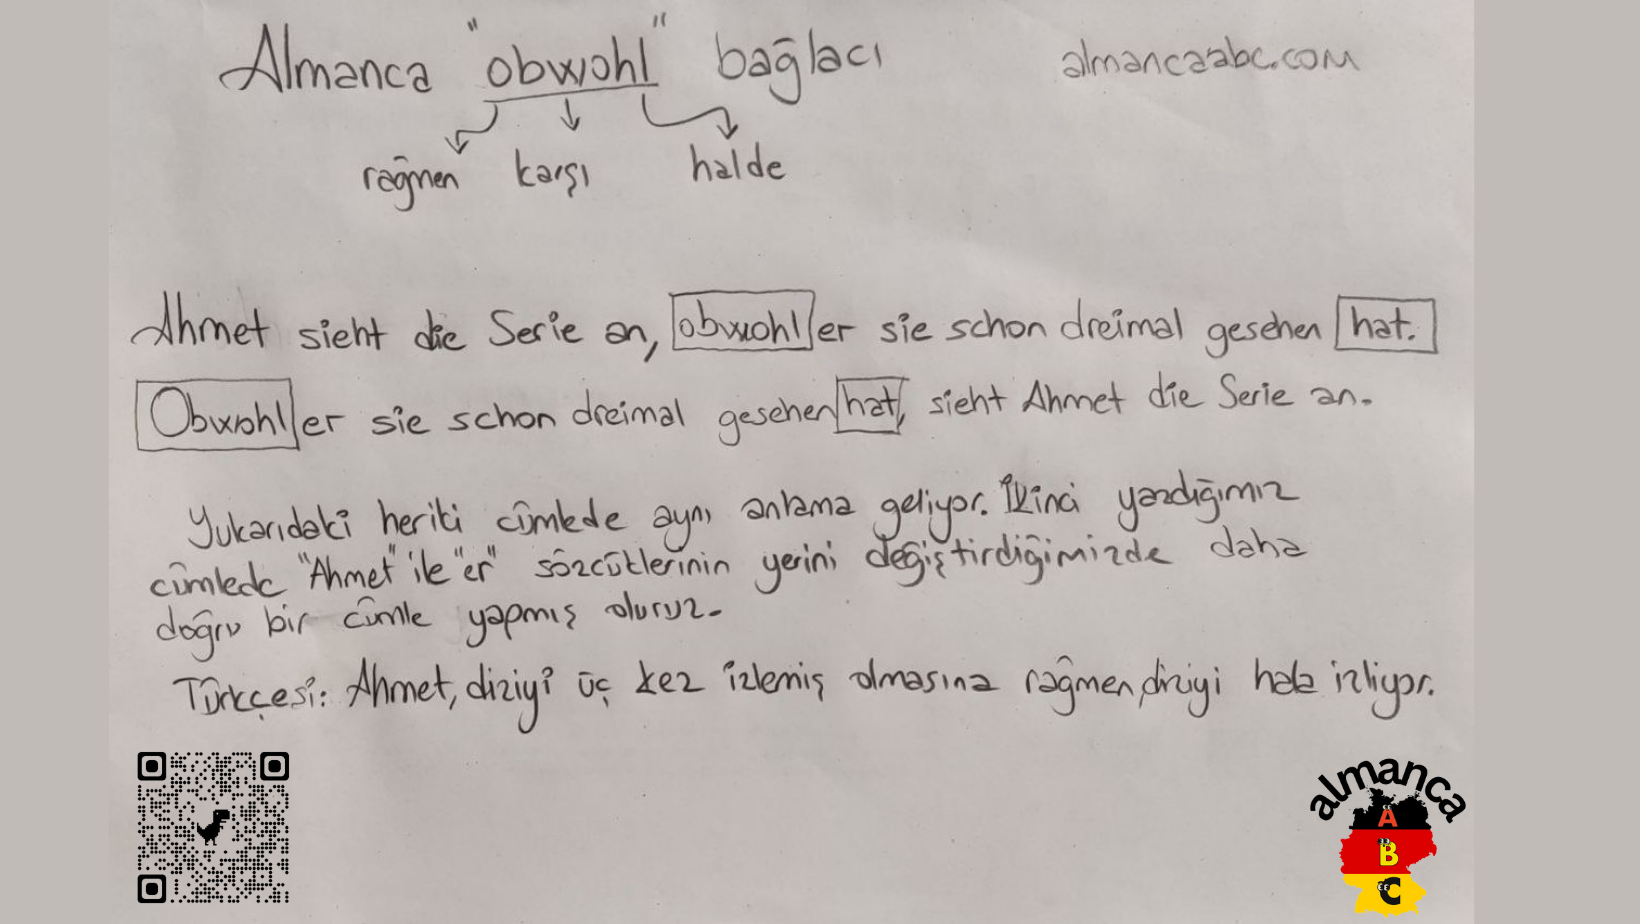 Almanca "obwohl" bağlacı
almancaabc.com
rağmen karşı halde
Ahmet sieht die Serie an, obwohl er sie schon dreimal gesehen hat.
Obwohl er sie schon dreimal gesehen hat, sieht Ahmet die Serie an.
Yukarıdaki heriki cümlede aynı anlama geliyor. İkinci yazdığımız
cümlede "Ahmet" ile "er" sözcüklerinin yerini değiştirdiğimizde daha
doğru bir cümle yapmış oluruz.
Türkçesi: Ahmet, diziyi üç kez izlemiş olmasına rağmen, diziyi hala izliyor.
almanca
A
B
C